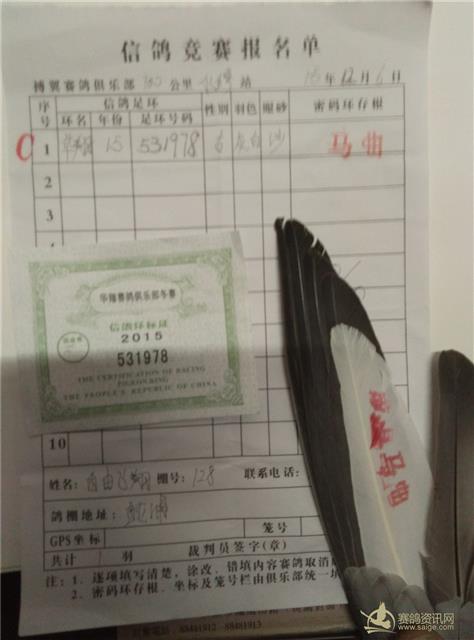 信鸽竞赛报名单
博翼赛鸽俱乐部 公里 站 15年12月6日
序号 信鸽足环 性别 羽色 眼砂 密码环存根
环名 年份 足环号码
C 1 15 531978 沙 马曲
2
3
4
华翔赛鸽俱乐部冬赛
信鸽环标证
2015
531978
THE CERTIFICATION OF RACING
PIGEON RING
THE PEOPLE'S REPUBLIC OF CHINA
10
姓名：自由飞翔 棚号：128 联系电话：
鸽棚地址：
GPS坐标 笼号
共计 1 羽 裁判员签字(章)
注：1、逐项填写清楚，涂改、错填内容赛鸽取消
2、密码环存根、坐标及笼号栏由俱乐部统一填
马曲
赛鸽资讯网
www.saige.com